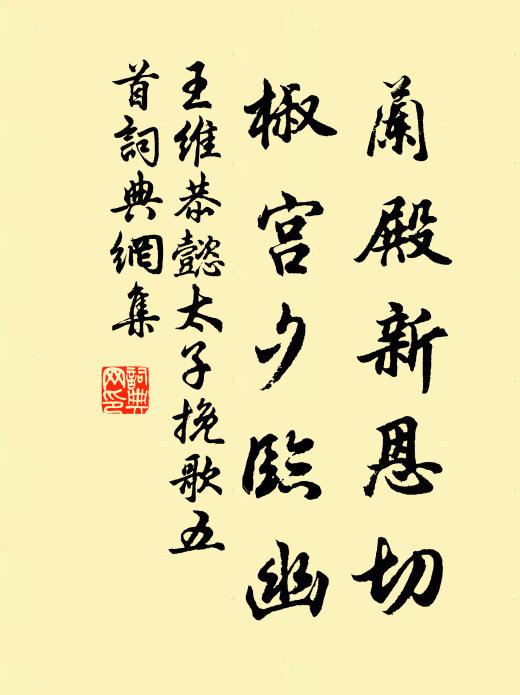 蘭殿新恩切
椒宮夕臨幽
王維恭懿太子挽歌五
首詞典網集
詞典
网印